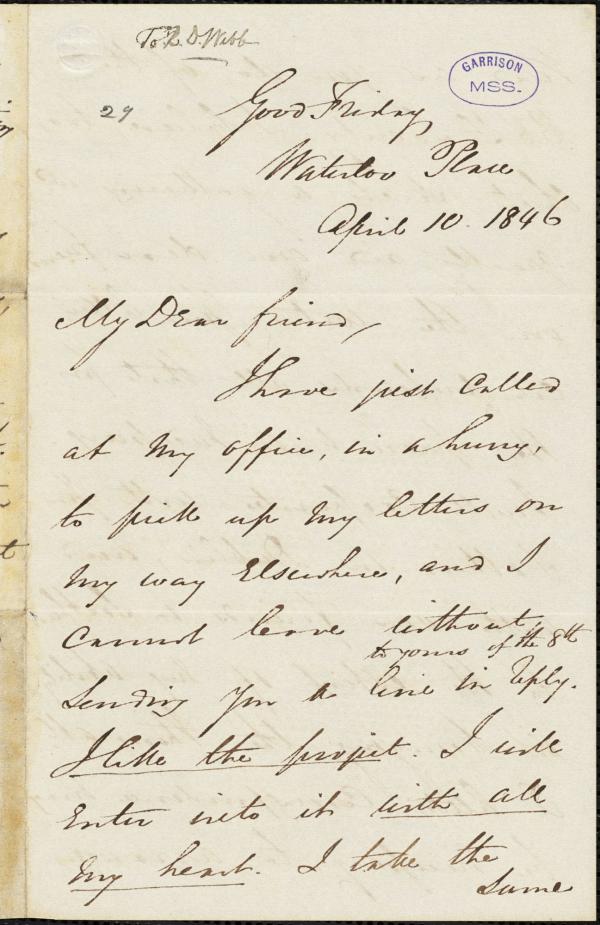 To R. D. Webb
GARRISON
MSS.
29
Good Friday
Waterloo Place
April 10. 1846
My Dear friend,
I have just called
at my office, in a hurry,
to pick up my letters on
my way Elsewhere, and I
cannot leave without
to yours of the 8th
sending you a line in reply.
I like the project. I will
Enter into it with all
my heart. I take the
same